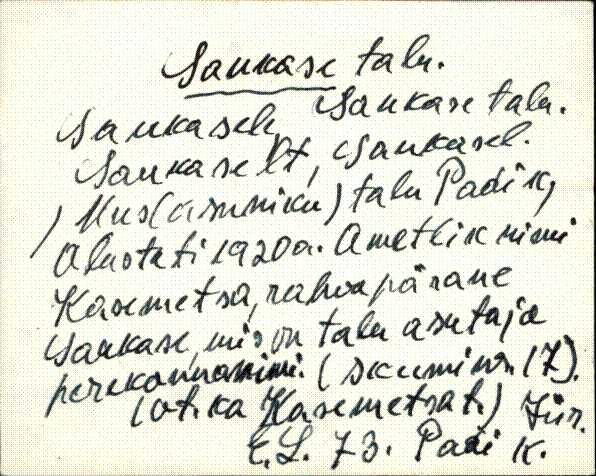 Saukase talu.
Saukasele Saukase talu.
Saukaselt, Saukasel.
Uus(asuniku) talu Padi k,
Alustati 1920a. Ametlik nimi
Kasemetsa, rahvapärane
Saukase, mis on talu asutaja
perekonnanimi. (skeemi nr. 17).
(vt. ka Kasemetsa t.) Jür.
E.L. 73. Padi k.